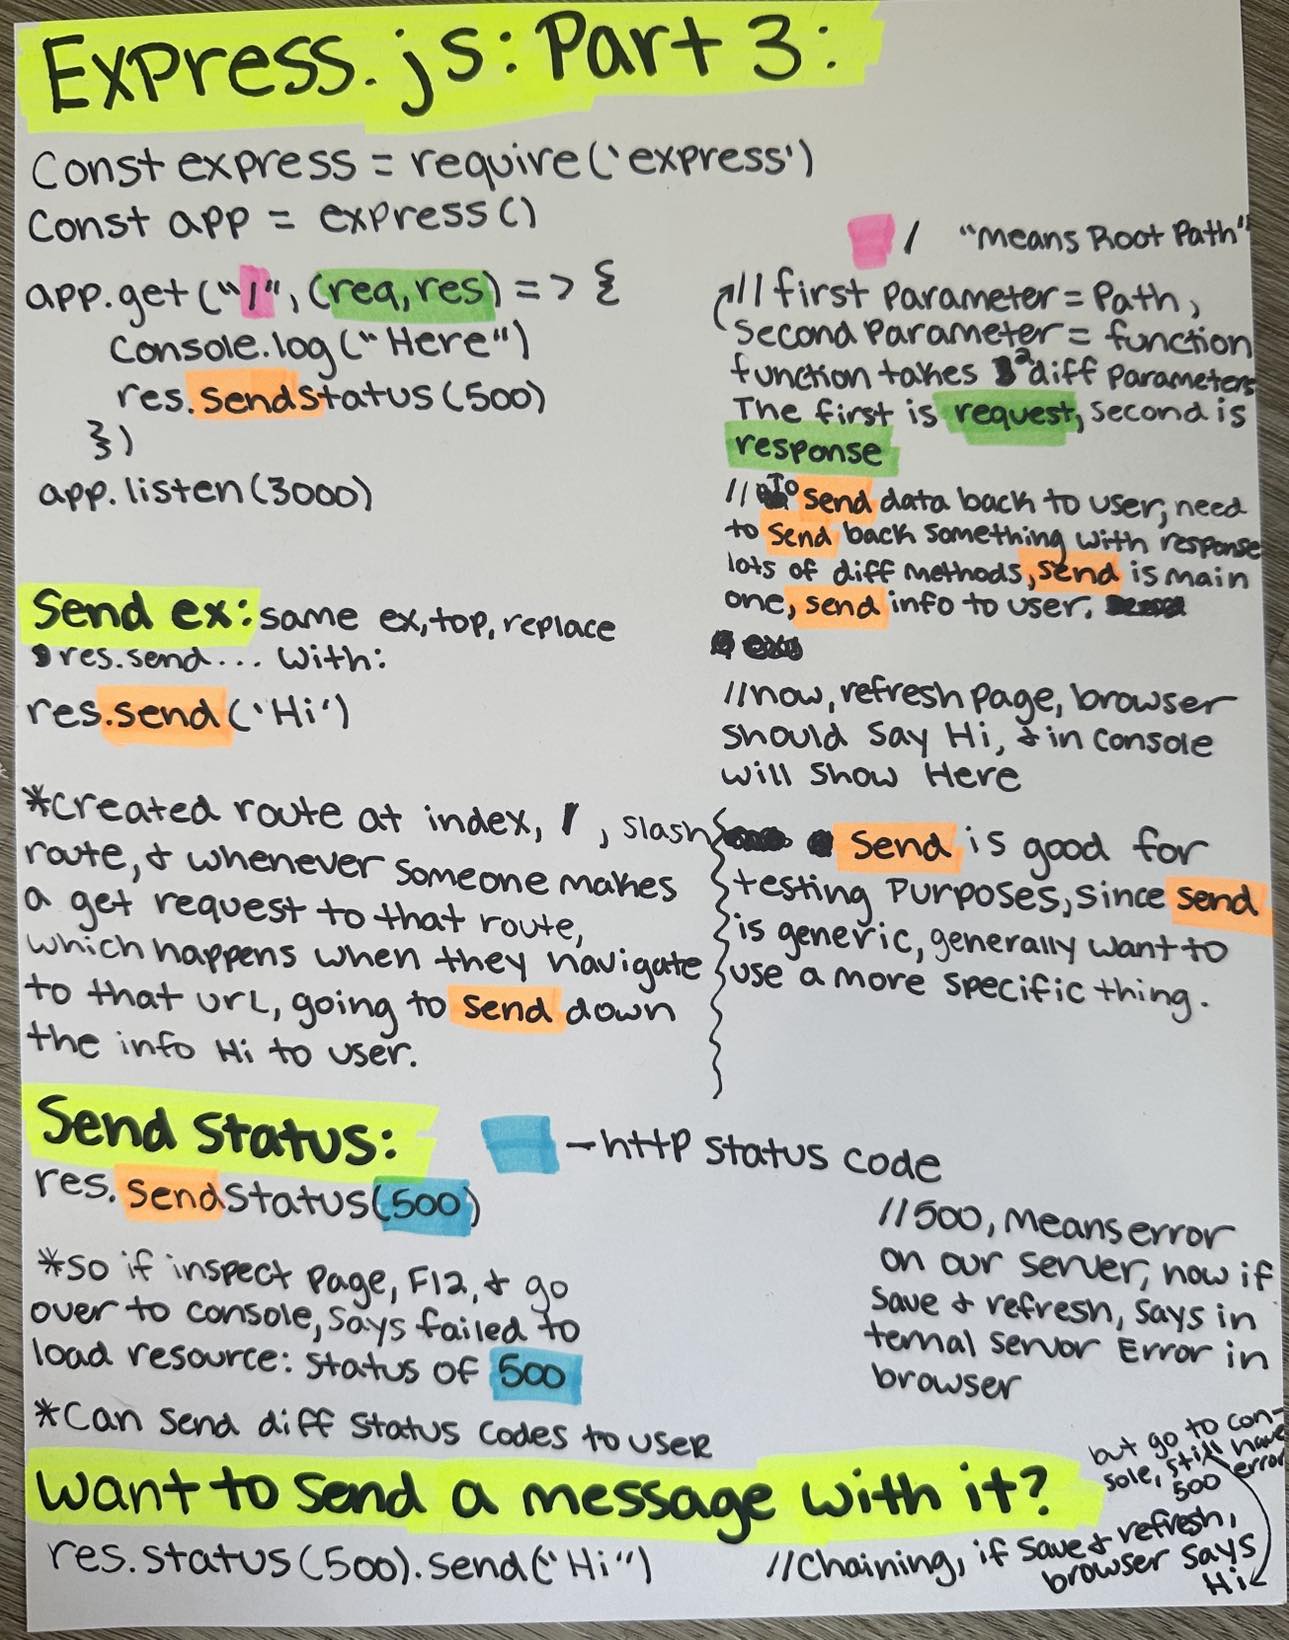 Express.js: Part 3:
Const express = require('express')
Const app = express()
app.get("/", (req, res) => {
Console.log("Here")
res.sendStatus(500)
})
app.listen(3000)
/ "means Root Path"
// first parameter = Path,
Second Parameter = function
function takes 2 diff parameters
The first is request, second is
response
// To send data back to user, need
to send back something with response
lots of diff methods, send is main
one, send info to user.
Send ex: same ex, top, replace
res.send... with:
res.send('Hi')
//now, refresh page, browser
should say Hi, & in console
will show Here
*Created route at index, /, slash
route, & whenever someone makes
a get request to that route,
which happens when they navigate
to that url, going to send down
the info Hi to user.
Send is good for
testing purposes, since send
is generic, generally want to
use a more specific thing.
Send Status:
- http status code
res.sendStatus(500)
//500, means error
on our server, now if
save & refresh, says in
ternal servor Error in
browser
*So if inspect page, F12, & go
over to console, says failed to
load resource: status of 500
*Can send diff status codes to user
Want to send a message with it?
res.status(500).send("Hi")
//Chaining, if save & refresh,
browser says
Hi
but go to con-
sole, still have
500 error